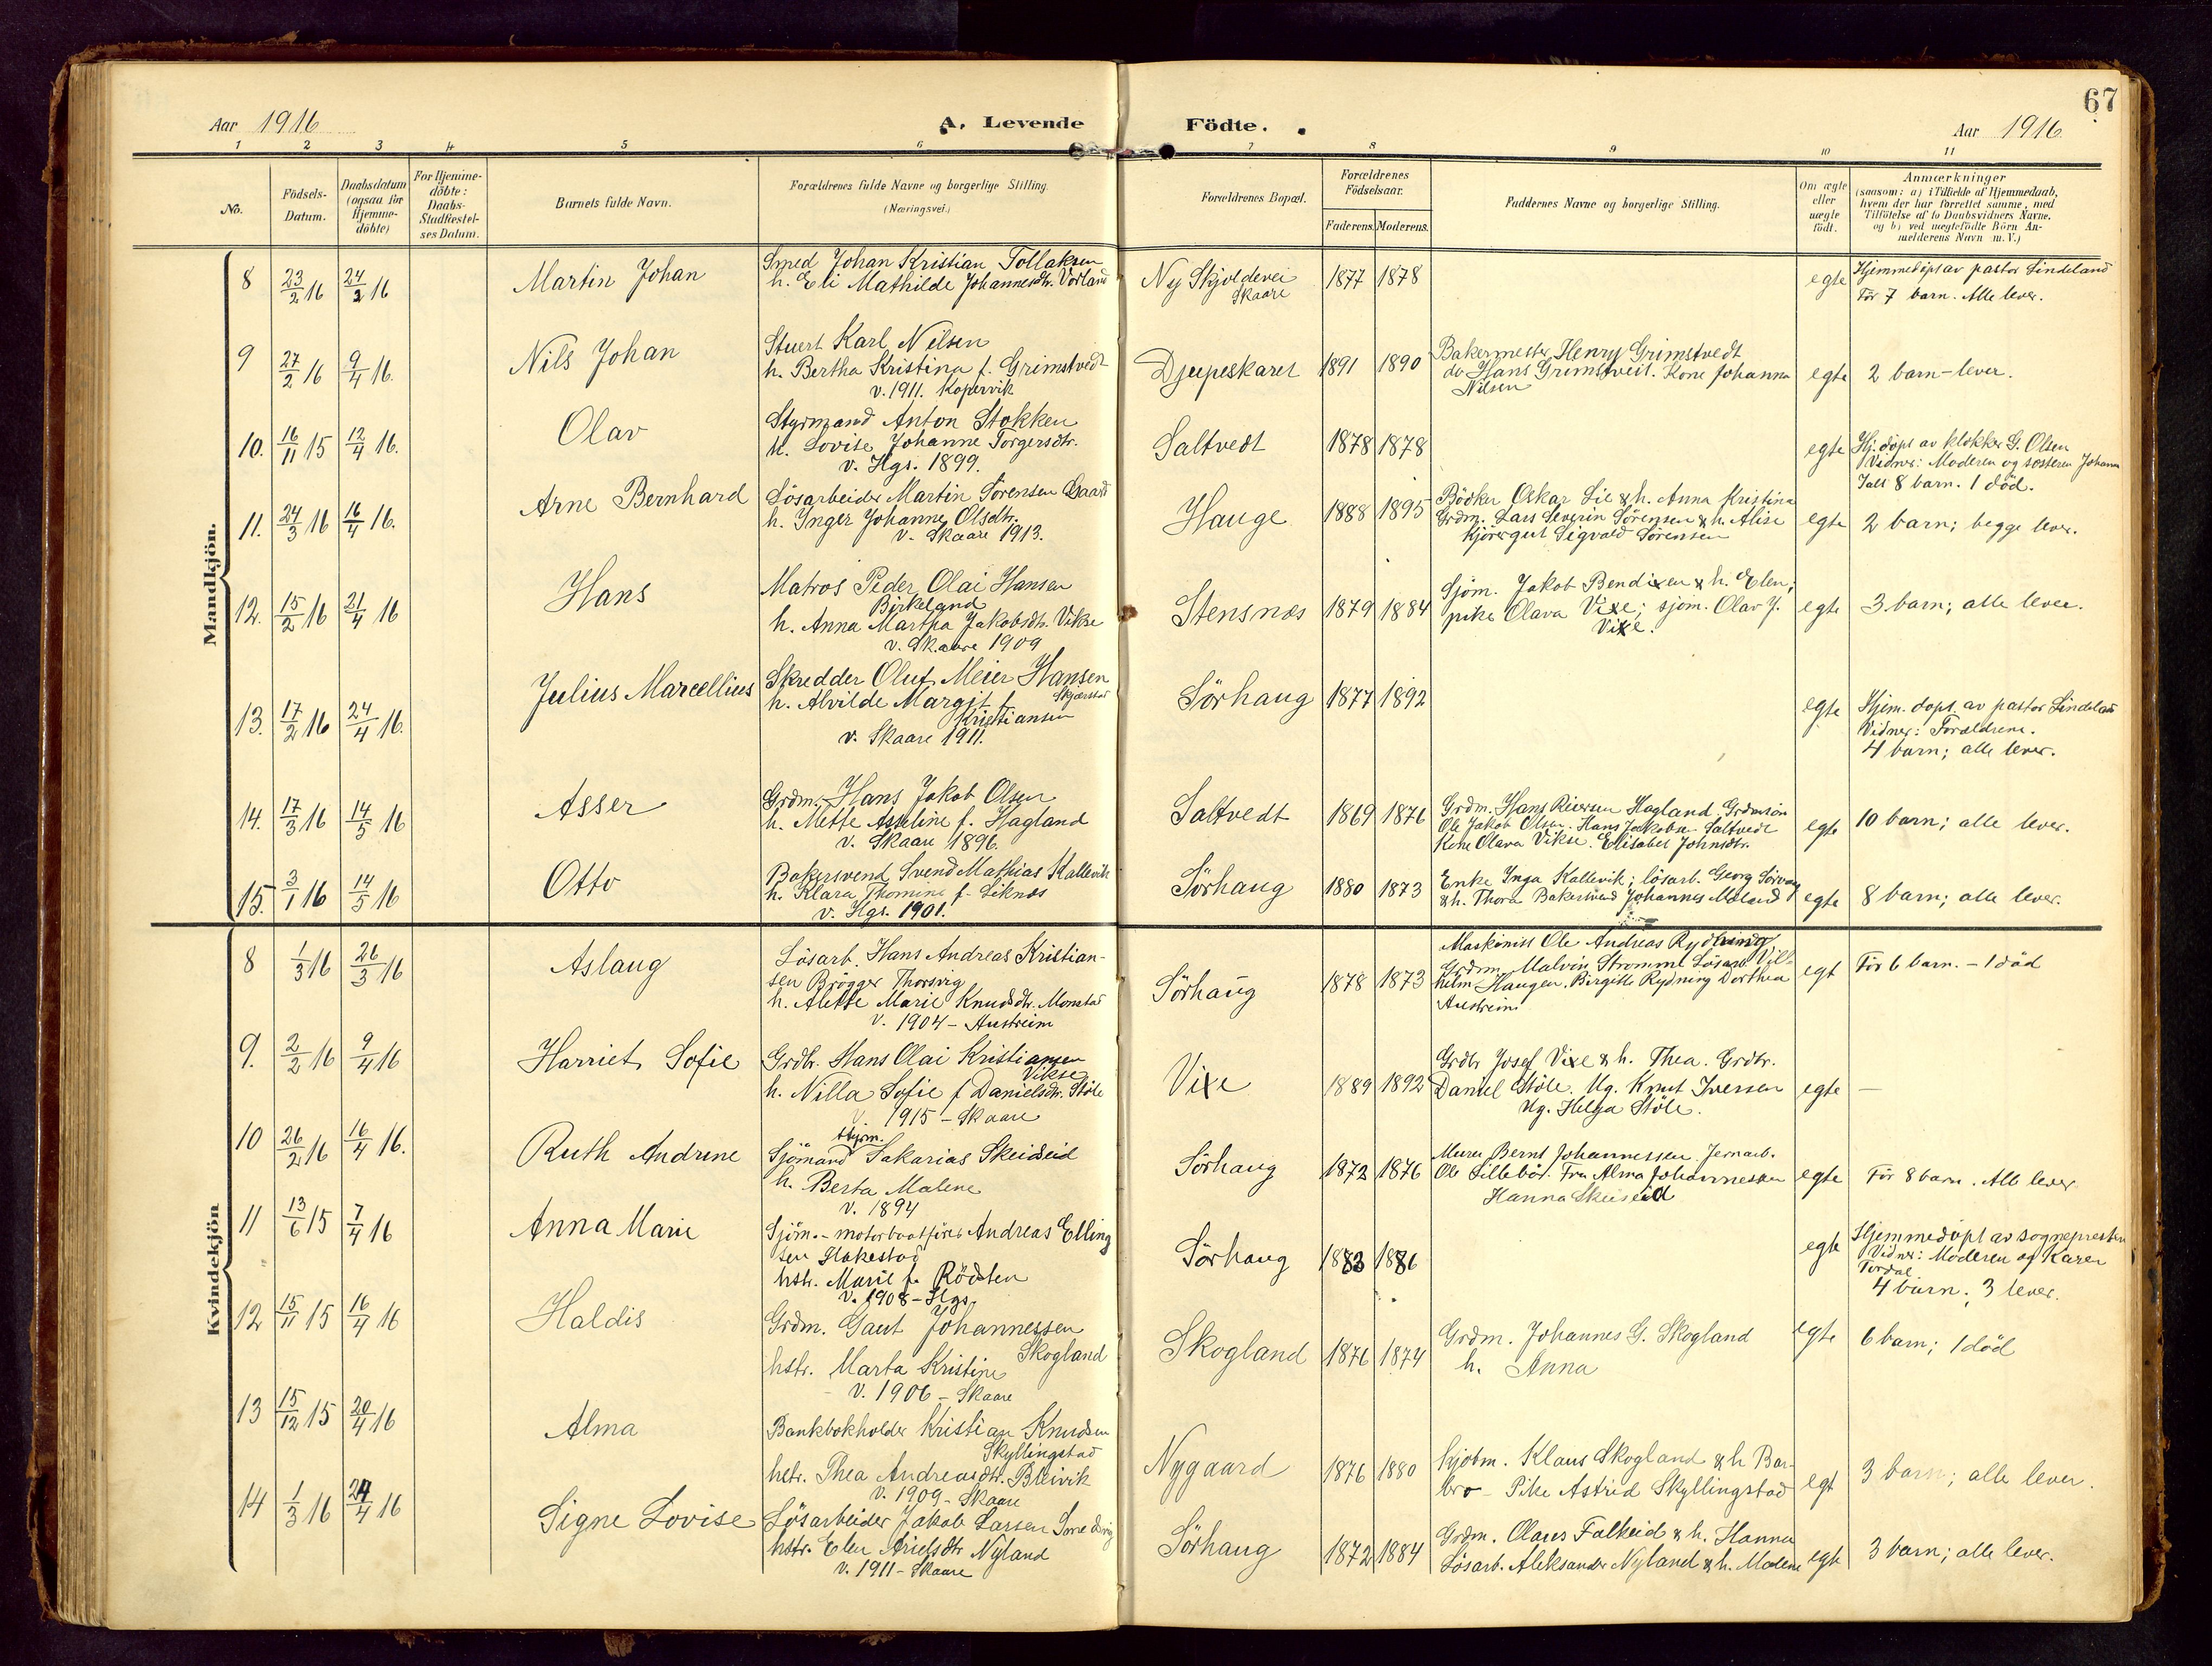 67
Aar 1916
A. Levende Födte.
Aar 1916
1 2 3 4 5 6 7 8 9 10 11
No.
Födsels-Datum.
Daabsdatum (ogsaa for Hjemme-döbte)
For Hjemme-döbte: Daabs-Stadfæstel-ses Datum.
Barnets fulde Navn.
Forældrenes fulde Navne og borgerlige Stilling. (Næringsvei.)
Forældrenes Bopæl.
Forældrenes Födselsaar.
Faderens. Moderens.
Faddernes Navne og borgerlige Stilling.
Om ægte eller uægte födt.
Anmærkninger
(saasom: a) i Tilfælde af Hjemmedaab,
hvem der har forrettet samme, med
Tilföielse af to Daabsvidners Navne.
og b) ved uægtefödte Börn An-
melderens Navn m. V.)
Mandkjön.
8 23/2 16 24/2 16 Martin Johan
Smed Johan Kristian Tollaksen
h. Eli Mathilde Johannesdtr. Vorland
Ny Skjoldevei
Skaare
1877 1878
egte
Hjemmedöpt av pastor Lindeland
För 7 barn. Alle lever.
9 27/2 16 9/4 16. Nils Johan
Stuert Karl Nilsen
h. Bertha Kristina f. Grimstvedt
v. 1911. Kopervik
Djupeskaret 1891 1890
Bakermester Henry Grimstvedt
do Hans Grimstveit. Kone Johanna
Nilsen
egte 2 barn - lever.
10. 16/11 15 12/4 16. Olav
Styrmand Anton Stokken
h. Lovise Johanne Torgersdtr.
v. Hgs. 1899.
Saltvedt 1878 1878
egte
Hj. döpt av klokker G. Olsen
Vidner: Moderen og sösteren Johanna
Ialt 8 barn. 1 död.
11. 24/3 16 16/4 16. Arne Bernhard
Lösarbeider Martin Sörensen Gaard
h. Inger Johanne Olsdtr.
v. Skaare 1913.
Hauge 1888 1895
Bödker Oskar Lie & h. Anna Kristina
Grdm. Lars Severin Sörensen & h. Alise
Kjöregut Sigvald Sörensen
egte 2 barn; begge lever.
12. 15/2 16 21/4 16 Hans
Matros Peder Olai Hansen
Birkeland
h. Anna Martha Jakobsdtr. Vikse
v. Skaare 1909
Stensnæs 1879 1884
Sjöm. Jakob Bendixen & h. Elen;
pike Olava Vixe; sjöm. Olav J.
Vixe.
egte 3 barn; alle lever.
13. 17/2 16 24/4 16. Julius Marcellius
Skredder Oluf Meier Hansen
Skjærstad
h. Alvilde Margit f.
Kristiansen
v. Skaare 1911.
Sörhaug 1877 1892
egte
Hjem. döpt. av pastor Lindeland
Vidner: Forældrene.
4 barn; alle lever.
14. 17/3 16 14/5 16 Asser
Grdm. Hans Jakob Olsen
h. Mette Asseline f. Hagland
v. Skaare 1896.
Saltvedt 1869 1876
Grdm. Hans Riversen Hagland. Grdmsön
Ole Jakob Olsen. Hans Jakobsen Saltvedt
Kone Olava Vikse. Elisabet Johnsdtr.
egte 10 barn; alle lever.
15. 3/1 16 14/5 16 Otto
Bakersvend Svend Mathias Kallevik
h. Klara Thomine f. Liknæs
v. Hgs. 1901.
Sörhaug 1880 1873
Enke Inga Kallevik; lösarb. Georg Sörvaag
& h. Thora. Bakersvend Johannes Moland
egte 8 barn; alle lever.
Kvindekjön
8 1/3 16 26/3 16 Aslaug
Lösarb. Hans Andreas Kristian-
sen Brögger Thorsvig
h. Alette Marie Knudsdtr. Monstad
v. 1904 - Austreim
Sörhaug 1878 1873
Maskinist Ole Andreas Rydning
Grdm. Malvin Strömme Lösarb. Vil-
helm Haugen. Birgitte Rydning Dorthea
Austreim
egt För 6 barn. - 1 död
9. 2/2 16 9/4 16 Harriet Sofie
Grdbr. Hans Olai Kristiansen
Vikse
h. Nilla Sofie f Danielsdtr. Stöle
V. 1915 - Skaare
Vixe 1889 1892
Grdbr Josef Vixe & h. Thea. Grdbr.
Daniel Stöle. Ug. Knut Iversen
Ug. Helga Stöle.
egte -
10 26/2 16 16/4 16. Ruth Andrine
styrm.
Sjömand Sakarias Skeiseid
h. Berta Malene
v. 1894
Sörhaug 1872 1876
Murer Bernt Johannessen. Jernarb.
Ole Lillebö. Fru Alma Johannessen
Hanna Skeiseid
egte För 8 barn. Alle lever
11 13/6 15 7/4 16 Anna Marie
Sjöm. - motorbaatförer Andreas Elling
sen Hakestad
hstr. Marie f. Rödsten
v. 1908 - Hgs.
Sörhaug 1883 1886
egte
Hjemmedöpt av sognepresten
Vidner: Moderen og Karen
Tordal
4 barn; 3 lever.
12 15/11 15 16/4 16 Haldis
Grdm. Gaut Johannessen
Skogland
hstr. Marta Kristine
V. 1906 - Skaare
Skogland 1876 1874
Grdm. Johannes G. Skogland
h. Anna
egte 6 barn; 1 död
13 15/12 15 20/4 16 Alma
Bankbokholder Kristian Knudsen
Skyllingstad
hstr. Thea Andreasdtr. Bleivik
v. 1909 - Skaare
Nygaard 1876 1880
Kjöbm. Klaus Skogland & h Bar-
bro - Pike Astrid Skyllingstad
egt 3 barn; alle lever.
14 1/3 16 24/4 16 Signe Lovise
Lösarbeider Jakob Larsen Smedvig
hstr. Elen Arielsdtr Nyland
v. 1911 - Skaare
Sörhaug 1872 1884
Grdm. Olaus Falkeid & h. Hanna
Lösarb. Aleksander Nyland & h. Malene
egte 3 barn; alle lever.